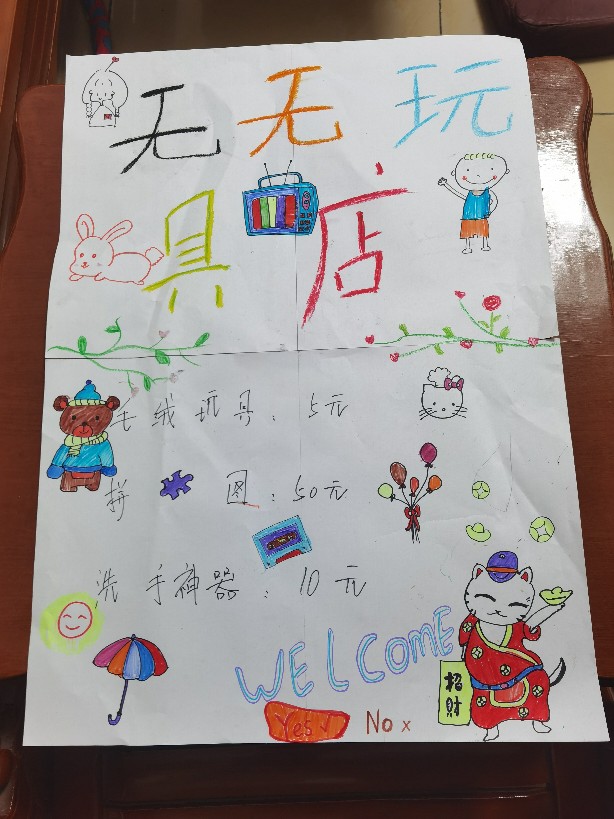 无无玩
具店
毛绒玩具：5元
拼图：50元
洗手神器：10元
WELCOME
招財
Yes√ No x